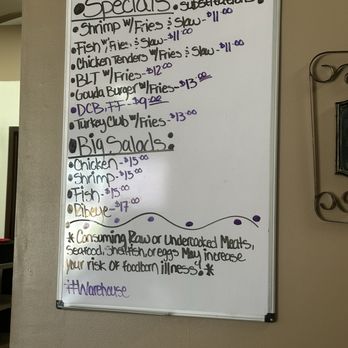 •Specials•
•Shrimp w/Fries & Slaw-$11.00
•Fish w/Fries & Slaw-$11.00
•Chicken Tenders w/Fries & Slaw-$11.00
•BLT w/Fries-$12.00
•Gouda Burger w/Fries-$13.00
•DCB, FF-$9.00
•Turkey Club w/Fries-$13.00
•Big Salads•
•Chicken-$15.00
•Shrimp-$15.00
•Fish-$15.00
•Ribeye-$17.00
*Consuming Raw or undercooked Meats,
Seafood, Shellfish, or eggs May increase
your risk of foodborn illness!*
#Warehouse